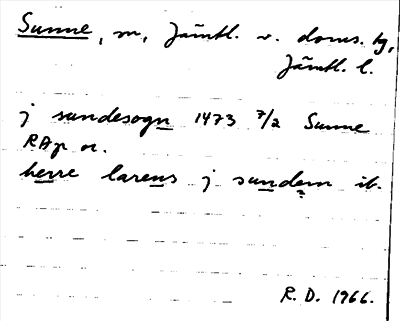 Sunne, sn, Jämtl. v. doms. hg,
Jämtl. l.
j sundesogn 1473 7/2 Sunne
RAp or.
herre larens j sundem ib.
R. D. 1966.